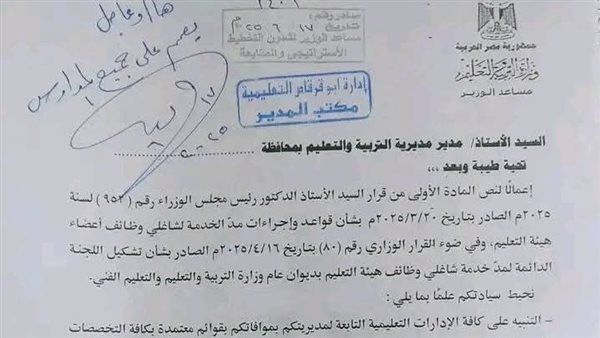 هام وعاجل
يعمم على جميع المدارس
صادر رقم:
تاريخ ١٧ ٦ ٢٥م
مساعد الوزير لشئون التخطيط
الاستراتيجي والمتابعة
إدارة ابوقرقاص التعليمية
مكتب المدير
جمهورية مصر العربية
وزارة التربية والتعليم
مساعد الوزير
السيد الأستاذ/ مدير مديرية التربية والتعليم بمحافظة
تحية طيبة وبعد ,,,
إعمالًا لنص المادة الأولى من قرار السيد الأستاذ الدكتور رئيس مجلس الوزراء رقم (٩٥٢) لسنة
٢٠٢٥م الصادر بتاريخ ٢٠٢٥/٣/٢٠م بشأن قواعد وإجراءات مدّ الخدمة لشاغلي وظائف أعضاء
هيئة التعليم، وفي ضوء القرار الوزاري رقم (٨٠) بتاريخ ٢٠٢٥/٤/١٦م الصادر بشأن تشكيل اللجنة
الدائمة لمدّ خدمة شاغلي وظائف هيئة التعليم بديوان عام وزارة التربية والتعليم والتعليم الفني.
نحيط سيادتكم علمًا بما يلي:
- التنبيه على كافة الإدارات التعليمية التابعة لمديريتكم بموافاتكم بقوائم معتمدة بكافة التخصصات